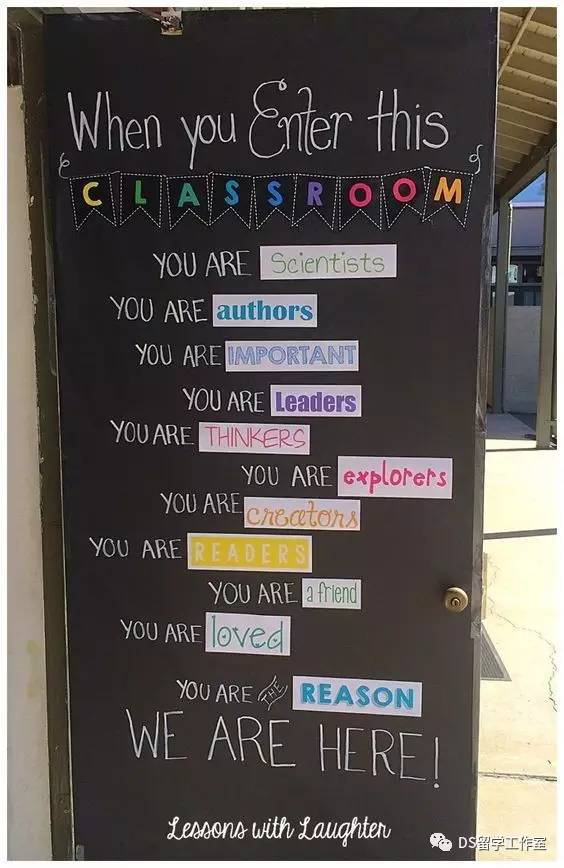 When you Enter this
CLASSROOM
YOU ARE Scientists
YOU ARE authors
YOU ARE IMPORTANT
YOU ARE Leaders
YOU ARE THINKERS
YOU ARE explorers
YOU ARE creators
YOU ARE READERS
YOU ARE a friend
YOU ARE loved
YOU ARE THE REASON
WE ARE HERE!
Lessons with Laughter
DS留学工作室